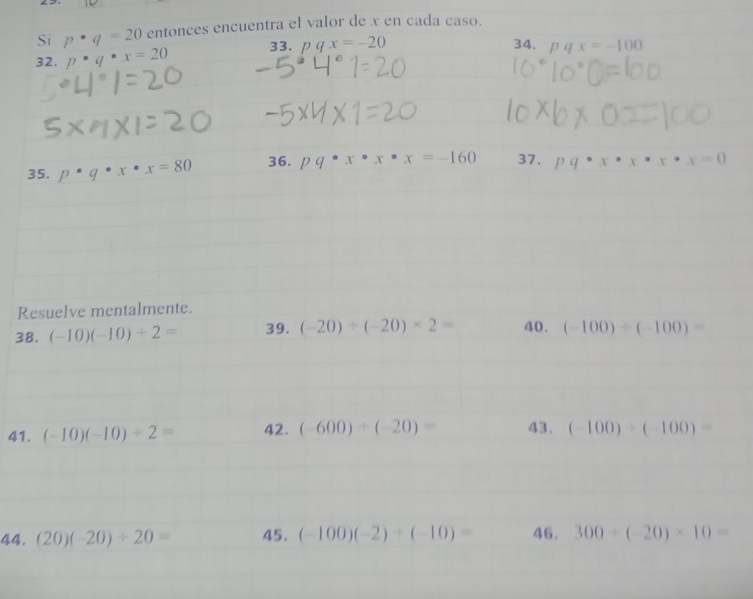 Si p • q = 20 entonces encuentra el valor de x en cada caso.
32. p • q • x = 20
33. p q x = -20
34. p q x = -100
5•4°1=20
-5°4°1=20
10°10°0=100
5x4x1=20
-5x4x1=20
10x6x0=100
35. p • q • x • x = 80
36. p q • x • x • x = -160
37. p q • x • x • x • x = 0
Resuelve mentalmente.
38. (-10)(-10) ÷ 2 =
39. (-20) ÷ (-20) × 2 =
40. (-100) ÷ (-100) =
41. (-10)(-10) ÷ 2 =
42. (-600) ÷ (-20) =
43. (-100) ÷ (-100) =
44. (20)(-20) ÷ 20 =
45. (-100)(-2) ÷ (-10) =
46. 300 ÷ (-20) × 10 =